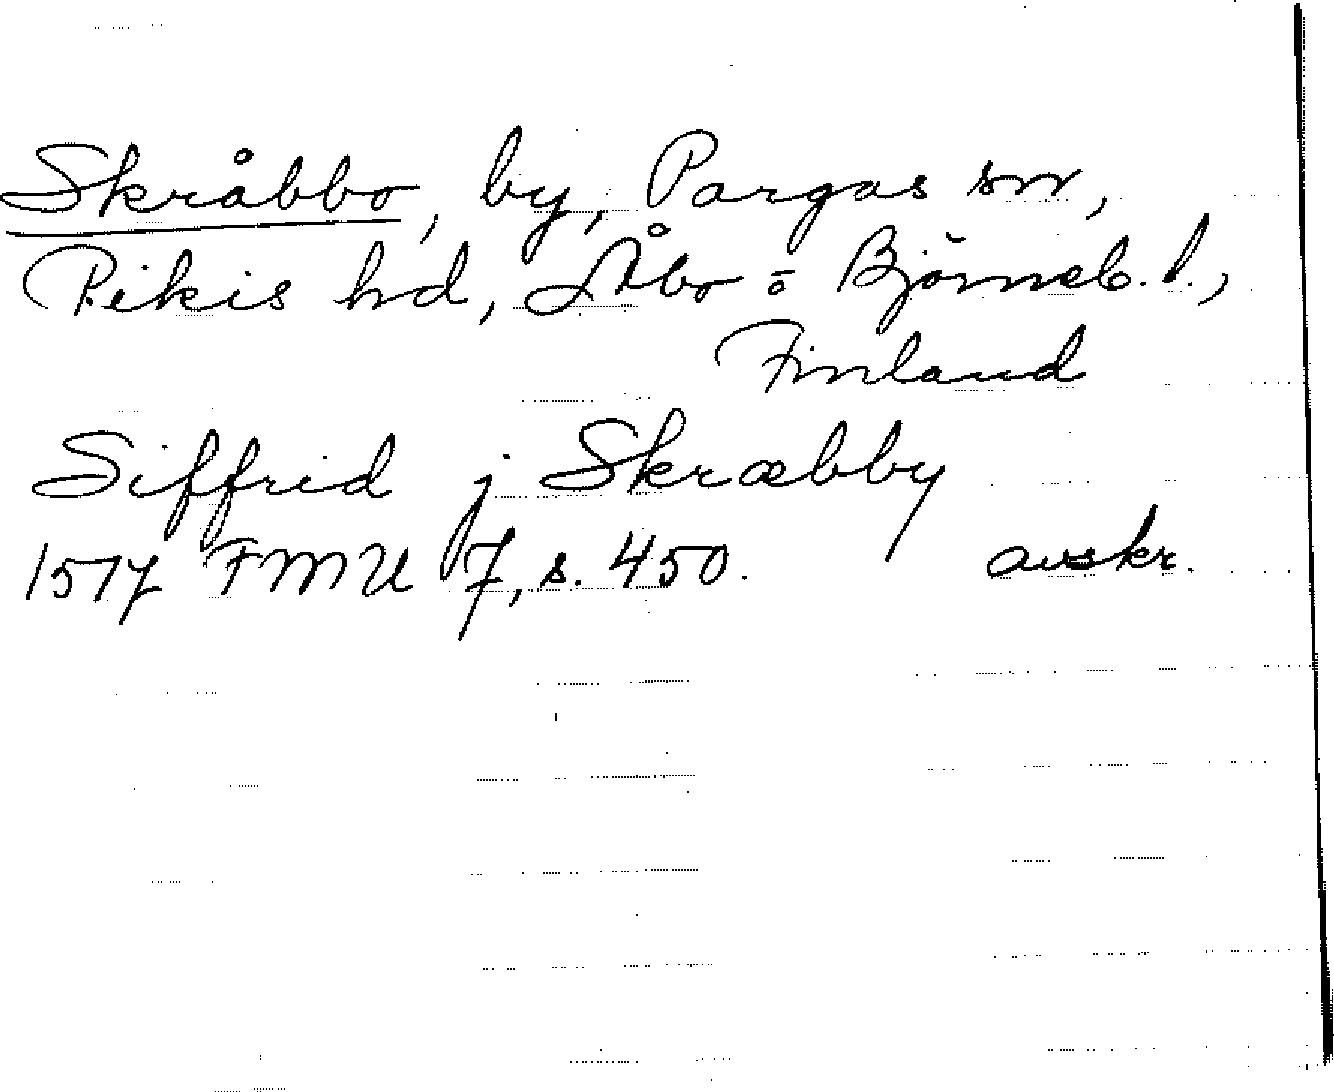 Skråbbo, by, Pargas sn,
Pikis hd, Åbo o Björneb. l.,
Finland
Siffrid j Skræbby
1517 FMU 7, s. 450. avskr.